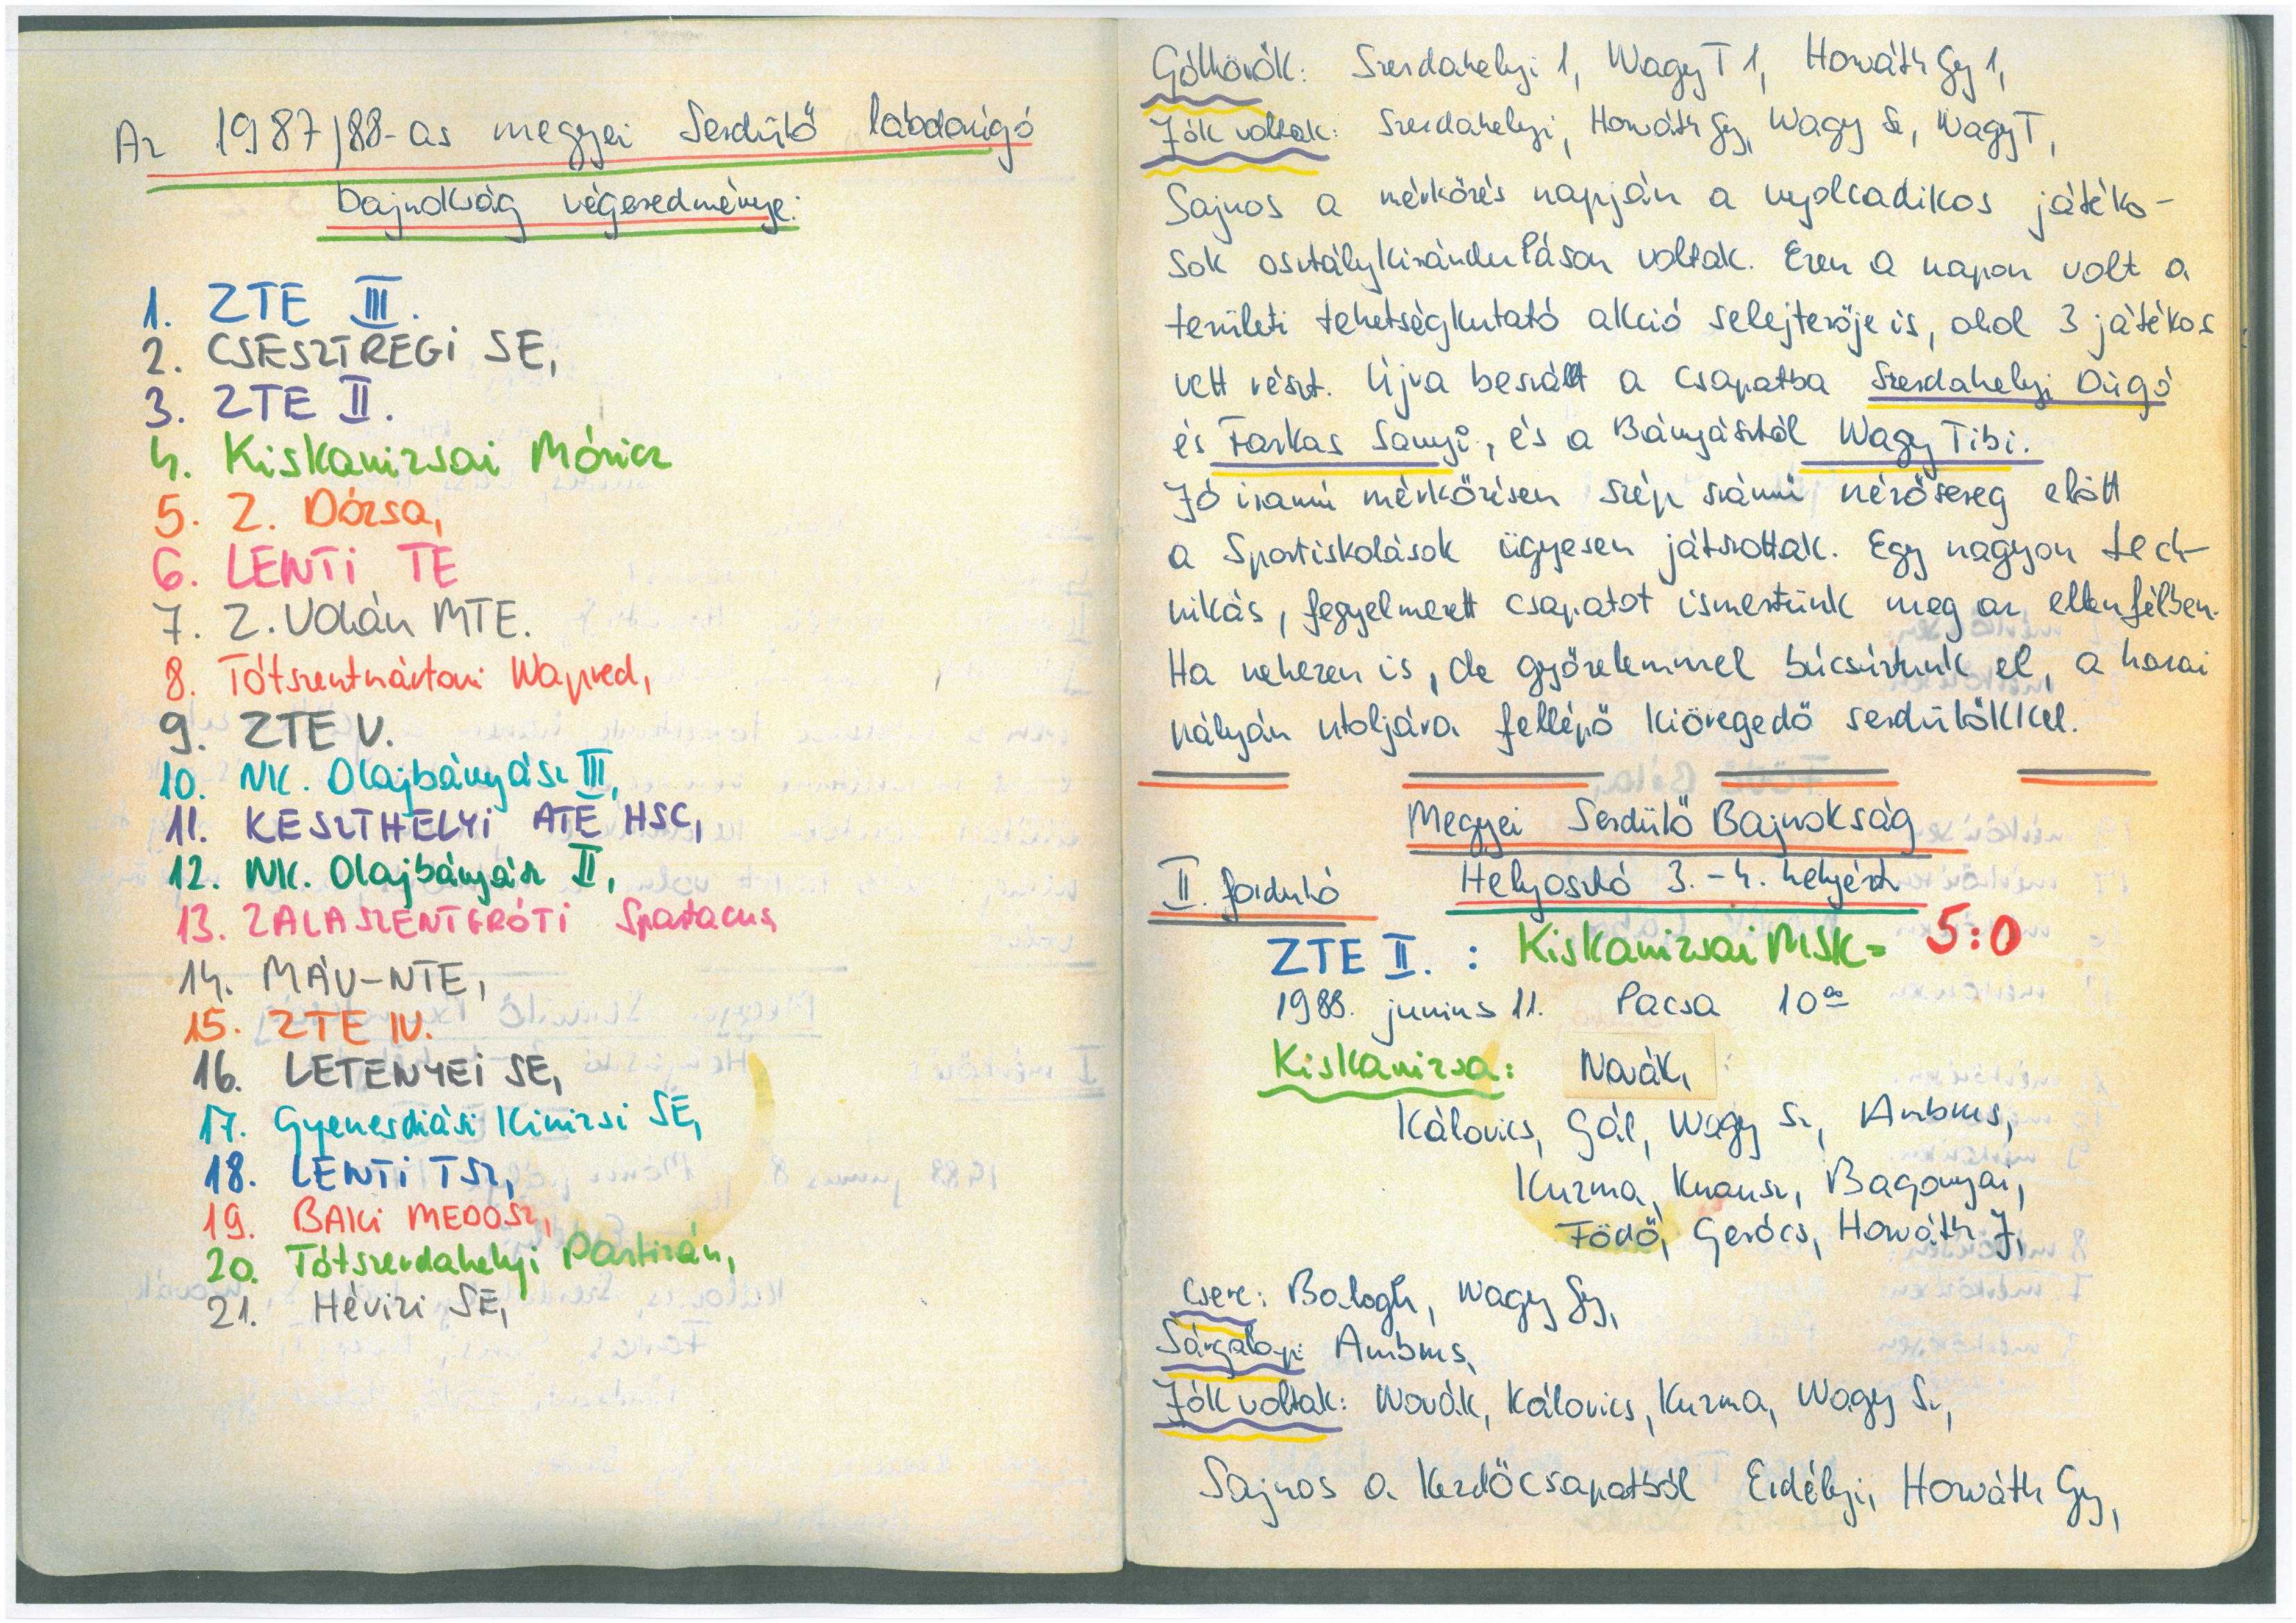 Az 1987/88-as megyei Serdülő labdarúgó
bajnokság végeredménye:
1. ZTE III.
2. CSESZTREGI SE,
3. ZTE II.
4. Kiskanizsai Móricz
5. Z. Dózsa,
6. LENTI TE
7. Z. Volán MTE.
8. Tótszentmártoni Napred,
9. ZTE V.
10. NK. Olajbányász III,
11. KESZTHELYI ATE HSC,
12. NK. Olajbányász II,
13. ZALASZENTGRÓTI Spartacus
14. MÁV-NTE,
15. ZTE IV.
16. LETENYEI SE,
17. Gyenesdiási Kinizsi SE,
18. LENTI TSZ,
19. BAKI MEDOSZ,
20. Tótszerdahelyi Partizán,
21. Hévizi SE,
Góllövők: Szerdahelyi 1, Nagy T 1, Horváth Gy 1,
Jók voltak: Szerdahelyi, Horváth Gy, Nagy Sz, Nagy T,
Sajnos a mérkőzés napján a nyolcadikos játéko-
sok osztálykiránduláson voltak. Ezen a napon volt a
területi tehetségkutató akció selejtezője is, ahol 3 játékos
vett részt. Újra beszállt a csapatba Szerdahelyi Dugó
és Farkas Sanyi, és a Bányásztól Nagy Tibi.
Jó iramú mérkőzésen szép számú nézősereg előtt
a Sportiskolások ügyesen játszottak. Egy nagyon tech-
nikás, fegyelmezett csapatot ismertünk meg az ellenfélben.
Ha nehezen is, de győzelemmel búcsúztunk el, a hazai
pályán utoljára fellépő kiöregedő serdülőkkel.
Megyei Serdülő Bajnokság
II. forduló Helyosztó 3.-4. helyért
ZTE II. : Kiskanizsai MSK= 5:0
1988. junius 11. Pacsa 10ºº
Kiskanizsa: Novák,
Kálovics, Gál, Nagy Sz, Ambrus,
Kuzma, Knausz, Bagonyai,
Födő, Gerócs, Horváth J,
Csere: Balogh, Nagy Gy,
Sárgalap: Ambrus,
Jók voltak: Novák, Kálovics, Kuzma, Nagy Sz,
Sajnos a kezdőcsapatból Erdélyi, Horváth Gy,